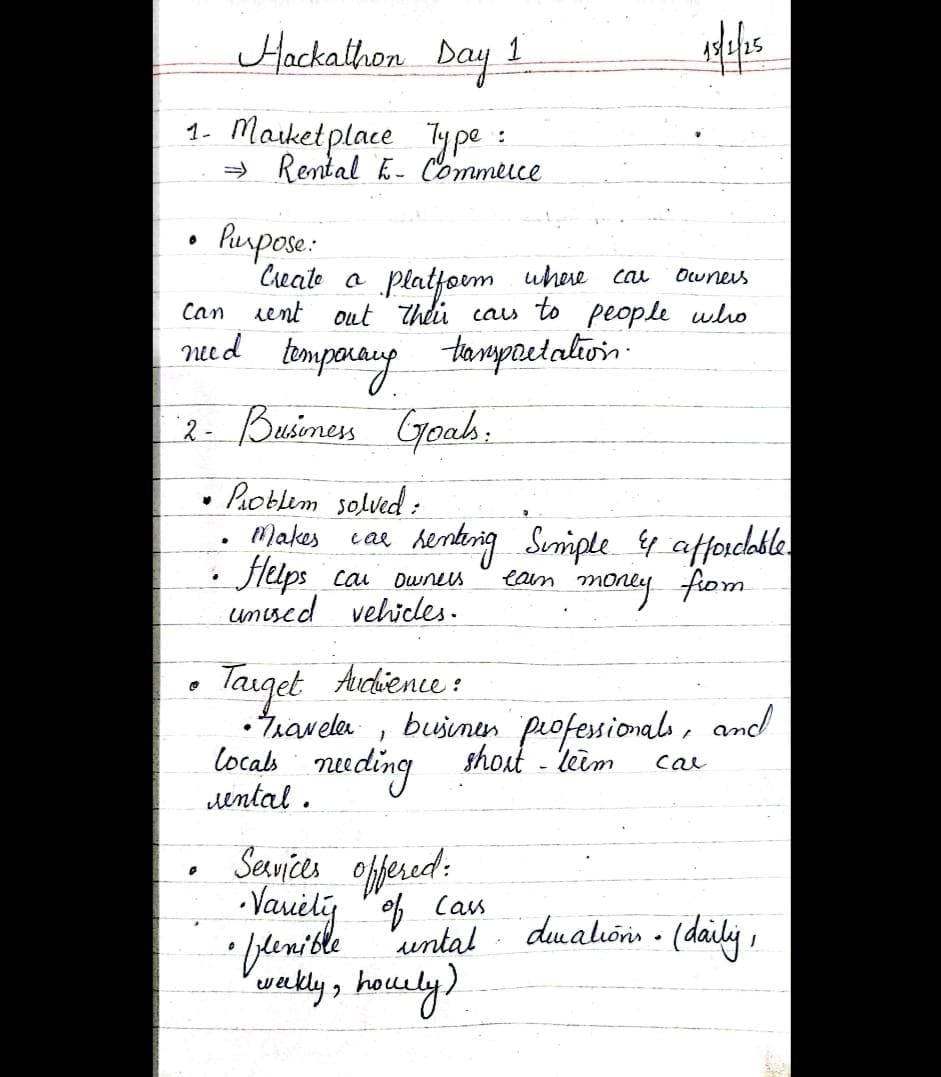 Hackathon Day 1 15/1/25
1- Marketplace Type :
⇒ Rental E- Commerce
• Purpose:
Create a platform where car owners
can rent out their cars to people who
need temporary transportation.
2- Business Goals:
• Problem solved :
• Makes car renting Simple & affordable.
• Helps car owners earn money from
unused vehicles.
• Target Audience :
• Traveler , business professionals, and
locals needing short - term car
rental .
• Services offered:
• Variety of cars
• flexible rental durations. (daily,
weekly, hourly)